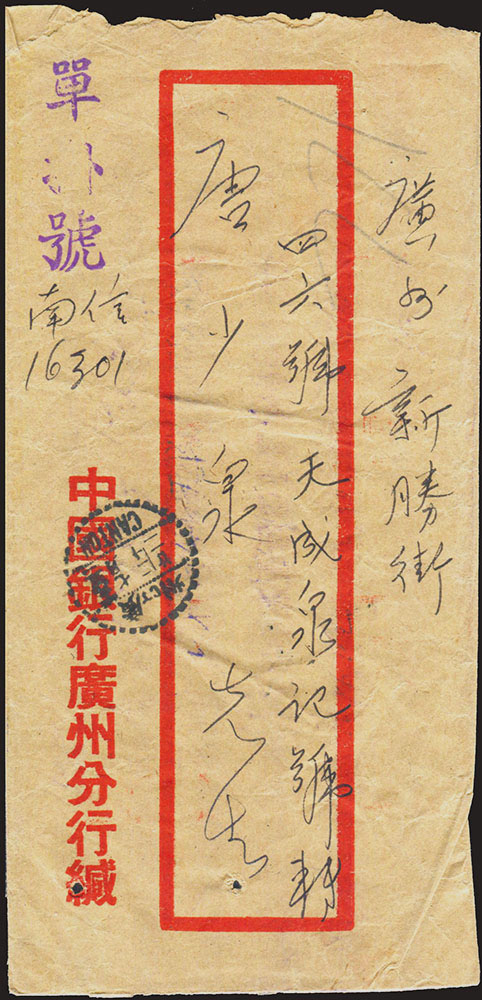 廣州新勝街
四六號天成泉記號轉
唐少泉先生
單掛號
南信
16301
中國銀行廣州分行緘
CANTON
廣州